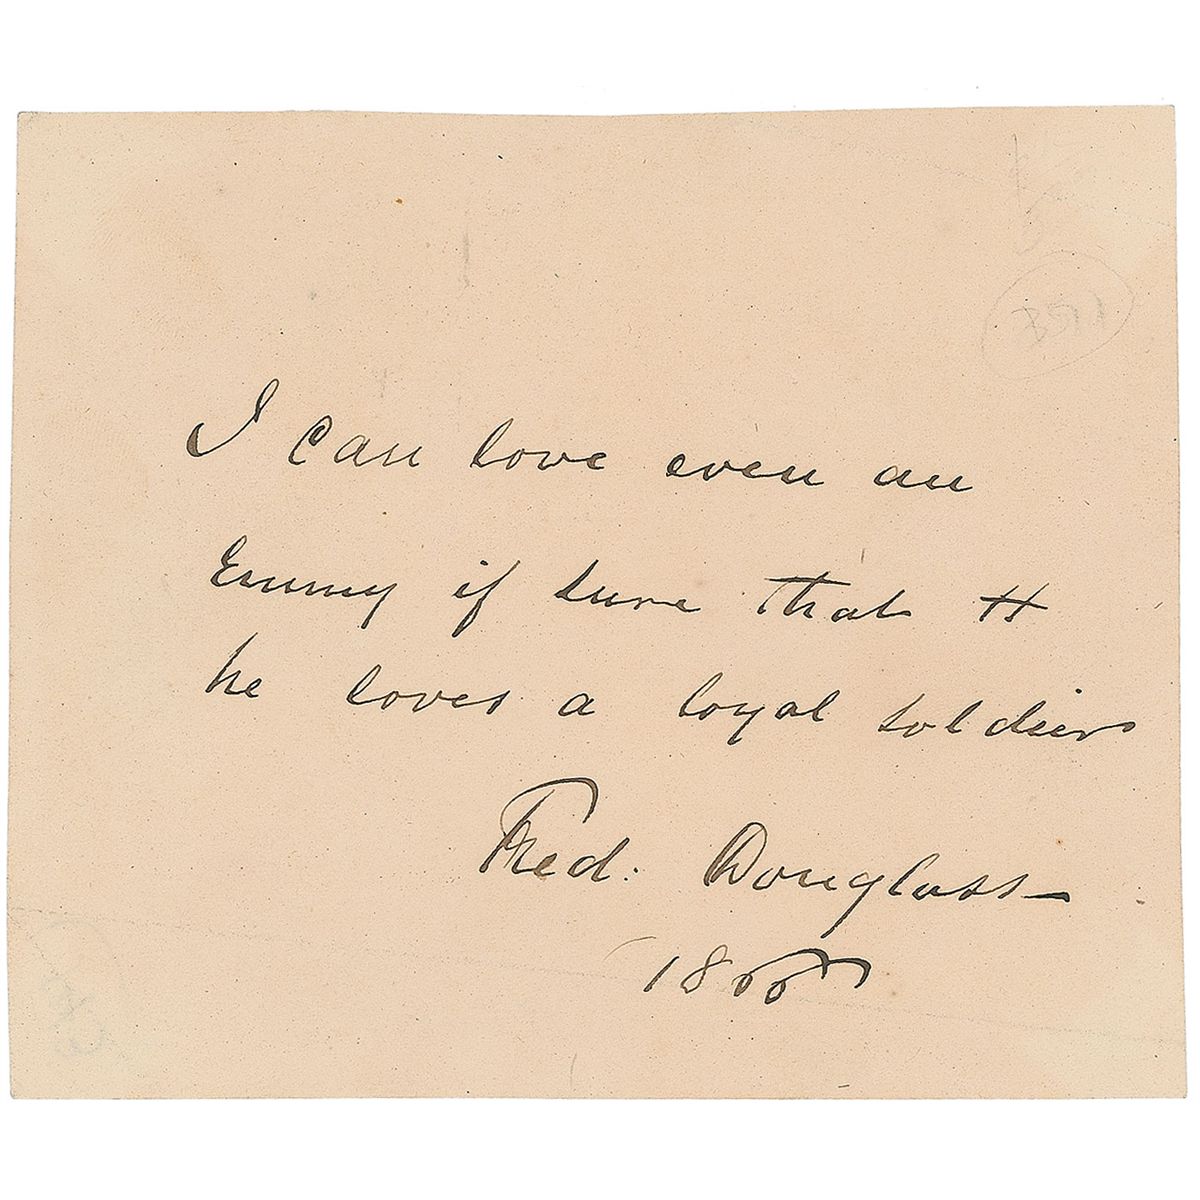 I can love even an
Enemy if sure that H
he loves a loyal soldier
Fred. Douglass
1866